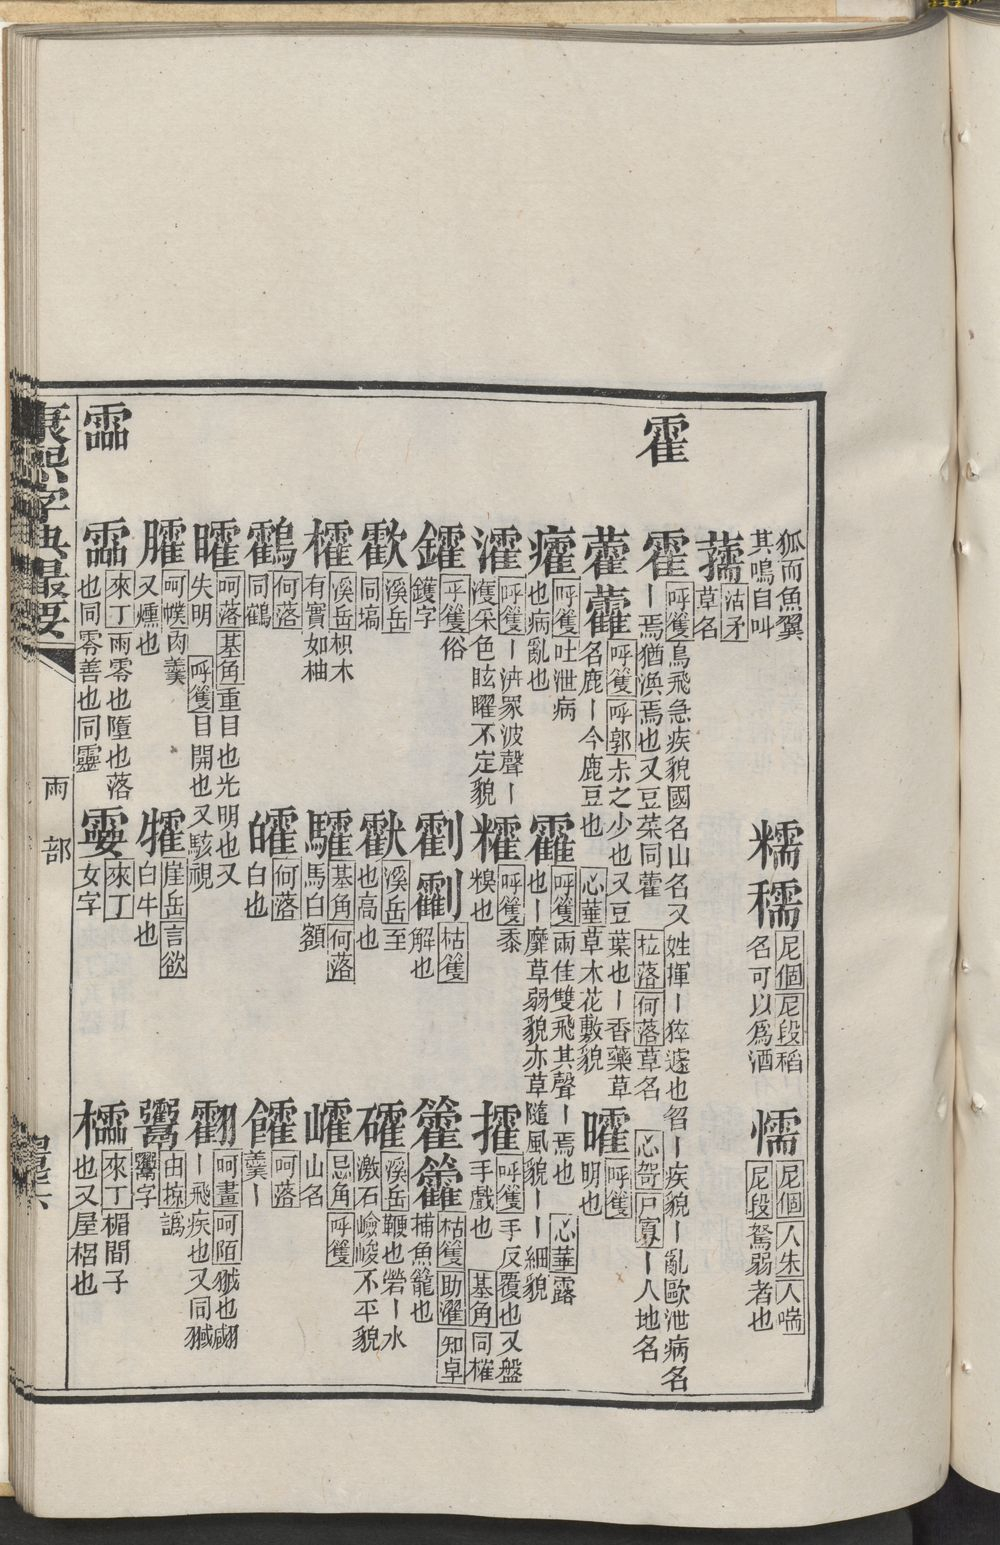 狐而魚翼
其鳴自叫
糯穤 尼個 尼段 稻
名可以爲酒
懦 尼個 人朱 人喘
尼段 駑弱者也
薷 沽矛
草名
霍
霍 呼籆 鳥飛急疾貌國名山名又姓揮丨猝遽也曶丨疾貌丨亂歐泄病名
丨焉猶渙焉也又豆菜同藿 拉落 何落 草名 心哿 尸寡 丨人地名
藿蘿 呼籆 呼郭 尗之少也又豆葉也丨香藥草
名鹿丨今鹿豆也 心華 草木花敷貌
曤 呼籆
明也
癨 呼籆 吐泄病
也病亂也
靃 呼籆 兩隹雙飛其聲丨焉也 心華 露
也丨靡草弱貌亦草隨風貌丨丨細貌
瀖 呼籆 丨泋眾波聲丨
濩采色眩曜不定貌
糧 呼籆 黍
糗也
攉 呼籆 手反覆也又盤
手戲也 基角 同榷
鑵 平籆 俗
鑊字
劐 枯籆
解也
籗 枯籆 助濯 知卓
捕魚籠也
歡 溪岳
同塙
溪岳 至
也高也
礭 溪岳 鞭也礐丨水
激石嶮峻不平貌
欋 溪岳 枳木
有實如柚
騹 基角 何落
馬白額
㠠 忌角 呼籆
山名
鸖 何落
同鶴
皬 何落
白也
䭨 呵落
羹丨
矐 呵落 基角 重目也光明也又
失明 呼籆 目開也又駭視
呵畫 呵陌 㹲也翩
丨飛疾也又同㹲
臛 呵幞 肉羹
又爋也
犨 崖岳 言欲
白牛也
鬻 由掠 譌
鬻字
霝
霝 來丁 雨零也墮也落
也同零善也同靈
孁 來丁
女字
櫺 來丁 楣間子
也又屋梠也
康熙字典最要
雨部